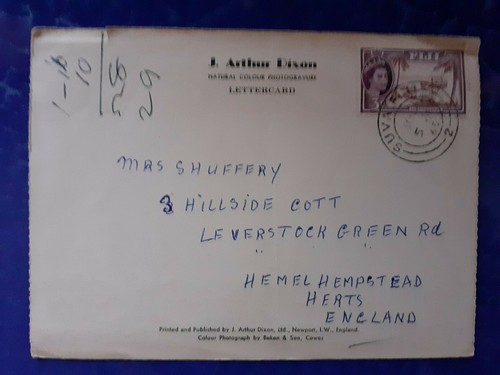 1-16
10
28
29
J. Arthur Dixon
NATURAL COLOUR PHOTOGRAVURE
LETTERCARD
FIJI
SUVA
MRS SHUFFERY
3 HILLSIDE COTT
LEVERSTOCK GREEN Rd
" "
HEMEL HEMPSTEAD
HERTS
ENGLAND
Printed and Published by J. Arthur Dixon, Ltd., Newport, I.W., England.
Colour Photograph by Beken & Son, Cowes